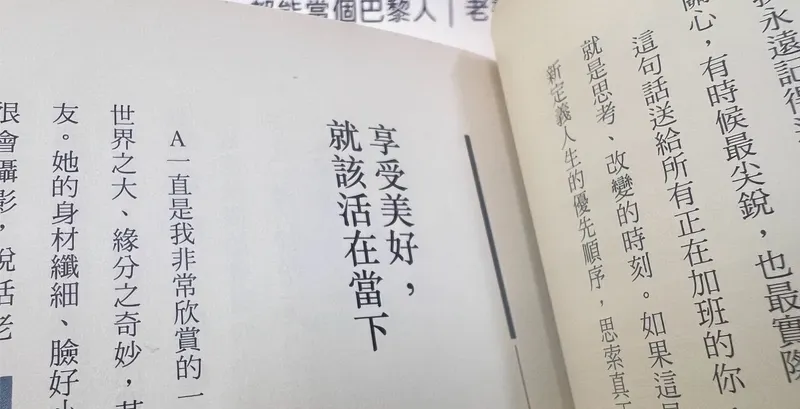 能當個巴黎人｜老
永遠記得
關心，有時候最尖銳，也最實際
這句話送給所有正在加班的你
就是思考、改變的時刻。如果這
新定義人生的優先順序，思索真
享受美好，
就該活在當下
A一直是我非常欣賞的一
世界之大、緣分之奇妙，其
友。她的身材纖細、臉好小
很會攝影，說話老